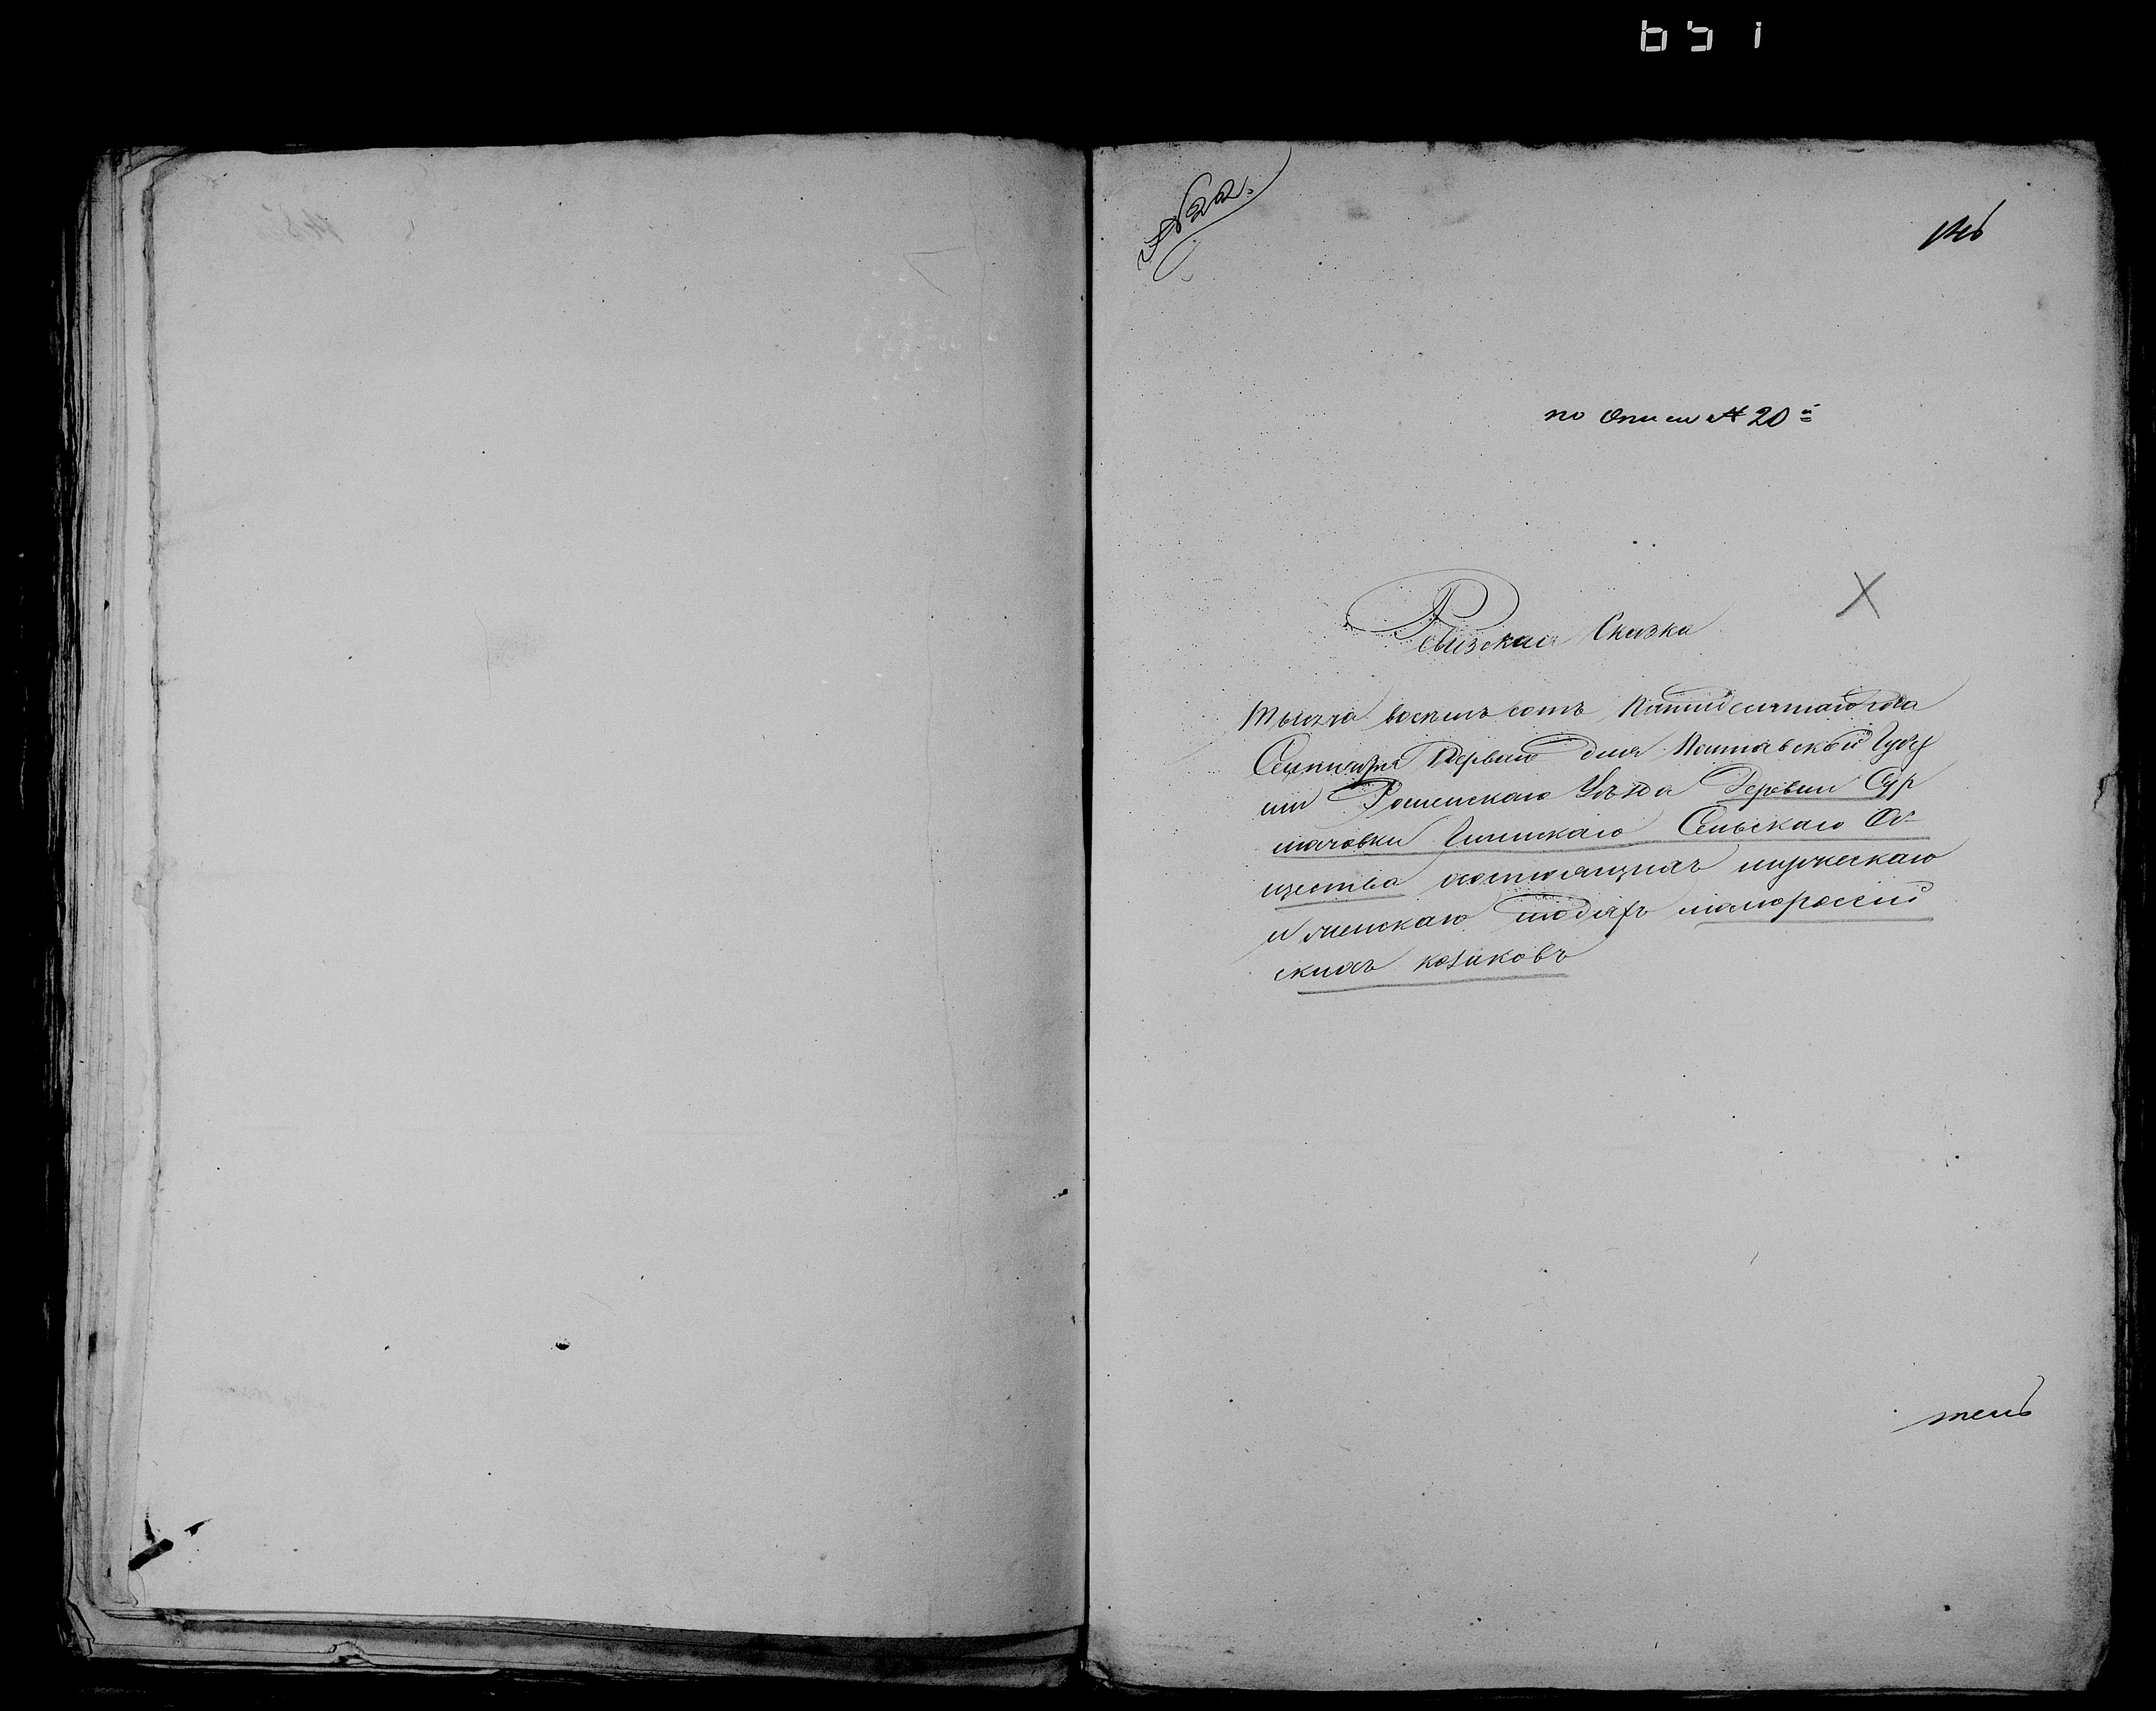 № 22.
по описи № 20й
Ревизская Сказка
Тысяча восемь сотъ пятидесятаго года
Сентября Первого дня Полтавской Губер
ніи Роменскаго Уѣзда Деревни Сур
мачовки Сельскаго Об-
щества состоящихъ мужескаго
и женскаго людяхъ малороссій
скихъ козаковъ